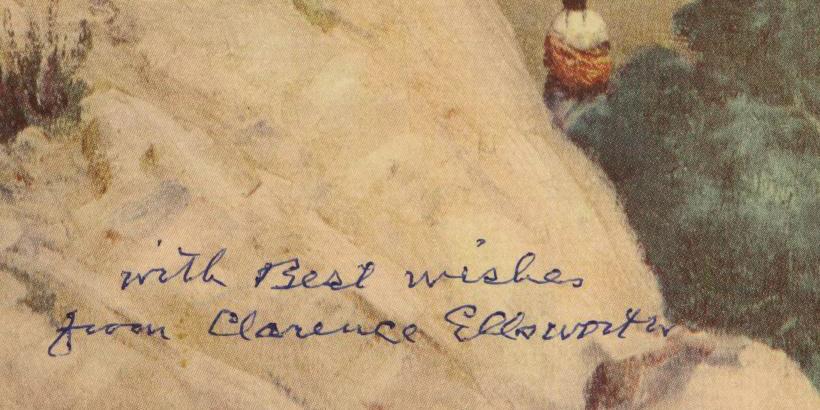 with Best wishes
from Clarence Ellsworth